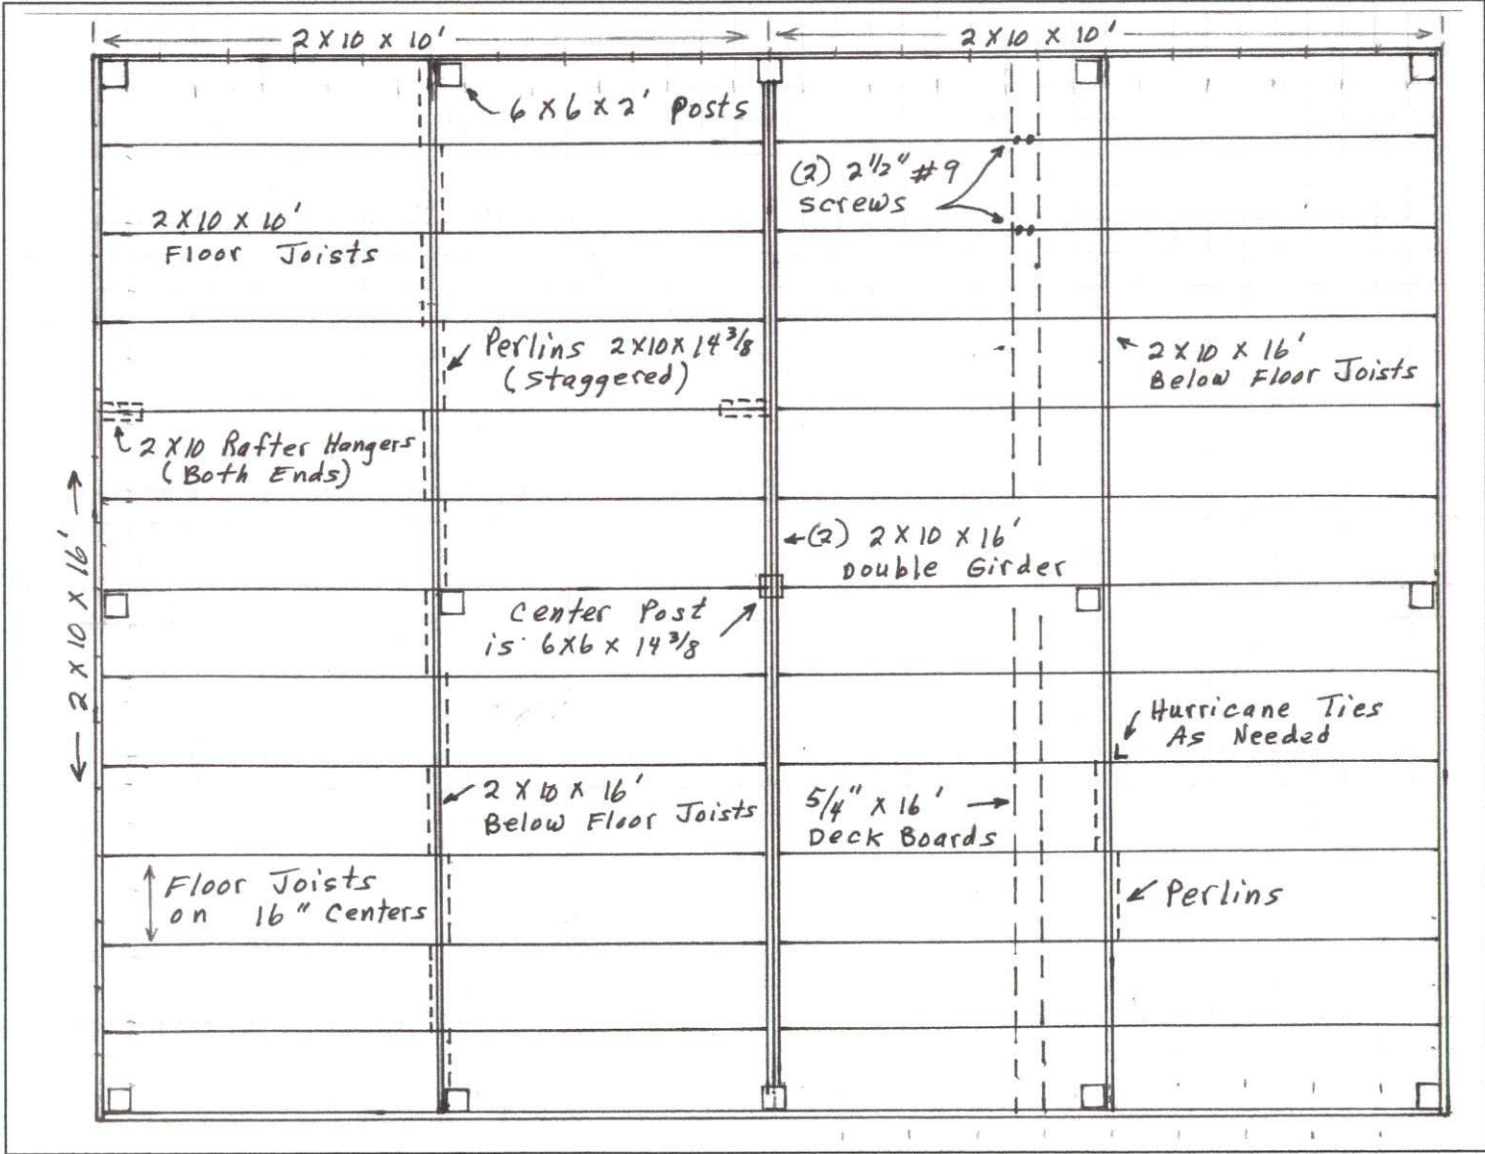 2 X 10 X 10'
2 X 10 X 10'
6 X 6 X 2' Posts
(2) 2 1/2" #9
screws
2 X 10 X 10'
Floor Joists
Perlins 2X10X 14 3/8
(Staggered)
2 X 10 X 16'
Below Floor Joists
2 X 10 Rafter Hangers
(Both Ends)
2 X 10 X 16'
(2) 2 X 10 X 16'
Double Girder
Center Post
is 6X6 X 14 3/8
Hurricane Ties
As Needed
2 X 10 X 16'
Below Floor Joists
5/4" X 16'
Deck Boards
Floor Joists
on 16" Centers
Perlins